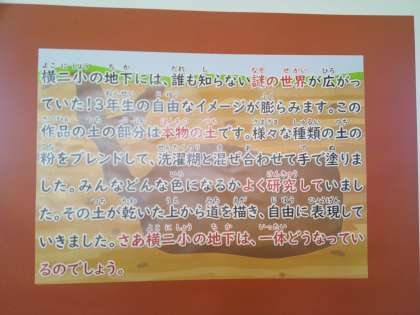 横二小の地下には、誰も知らない謎の世界が広がっ
ていた！３年生の自由なイメージが膨らみます。この
作品の土の部分は本物の土です。様々な種類の土の
粉をブレンドして、洗濯糊と混ぜ合わせて手で塗りま
した。みんなどんな色になるかよく研究していまし
た。その土が乾いた上から道を描き、自由に表現して
いきました。さあ横二小の地下は、一体どうなってい
るのでしょう。